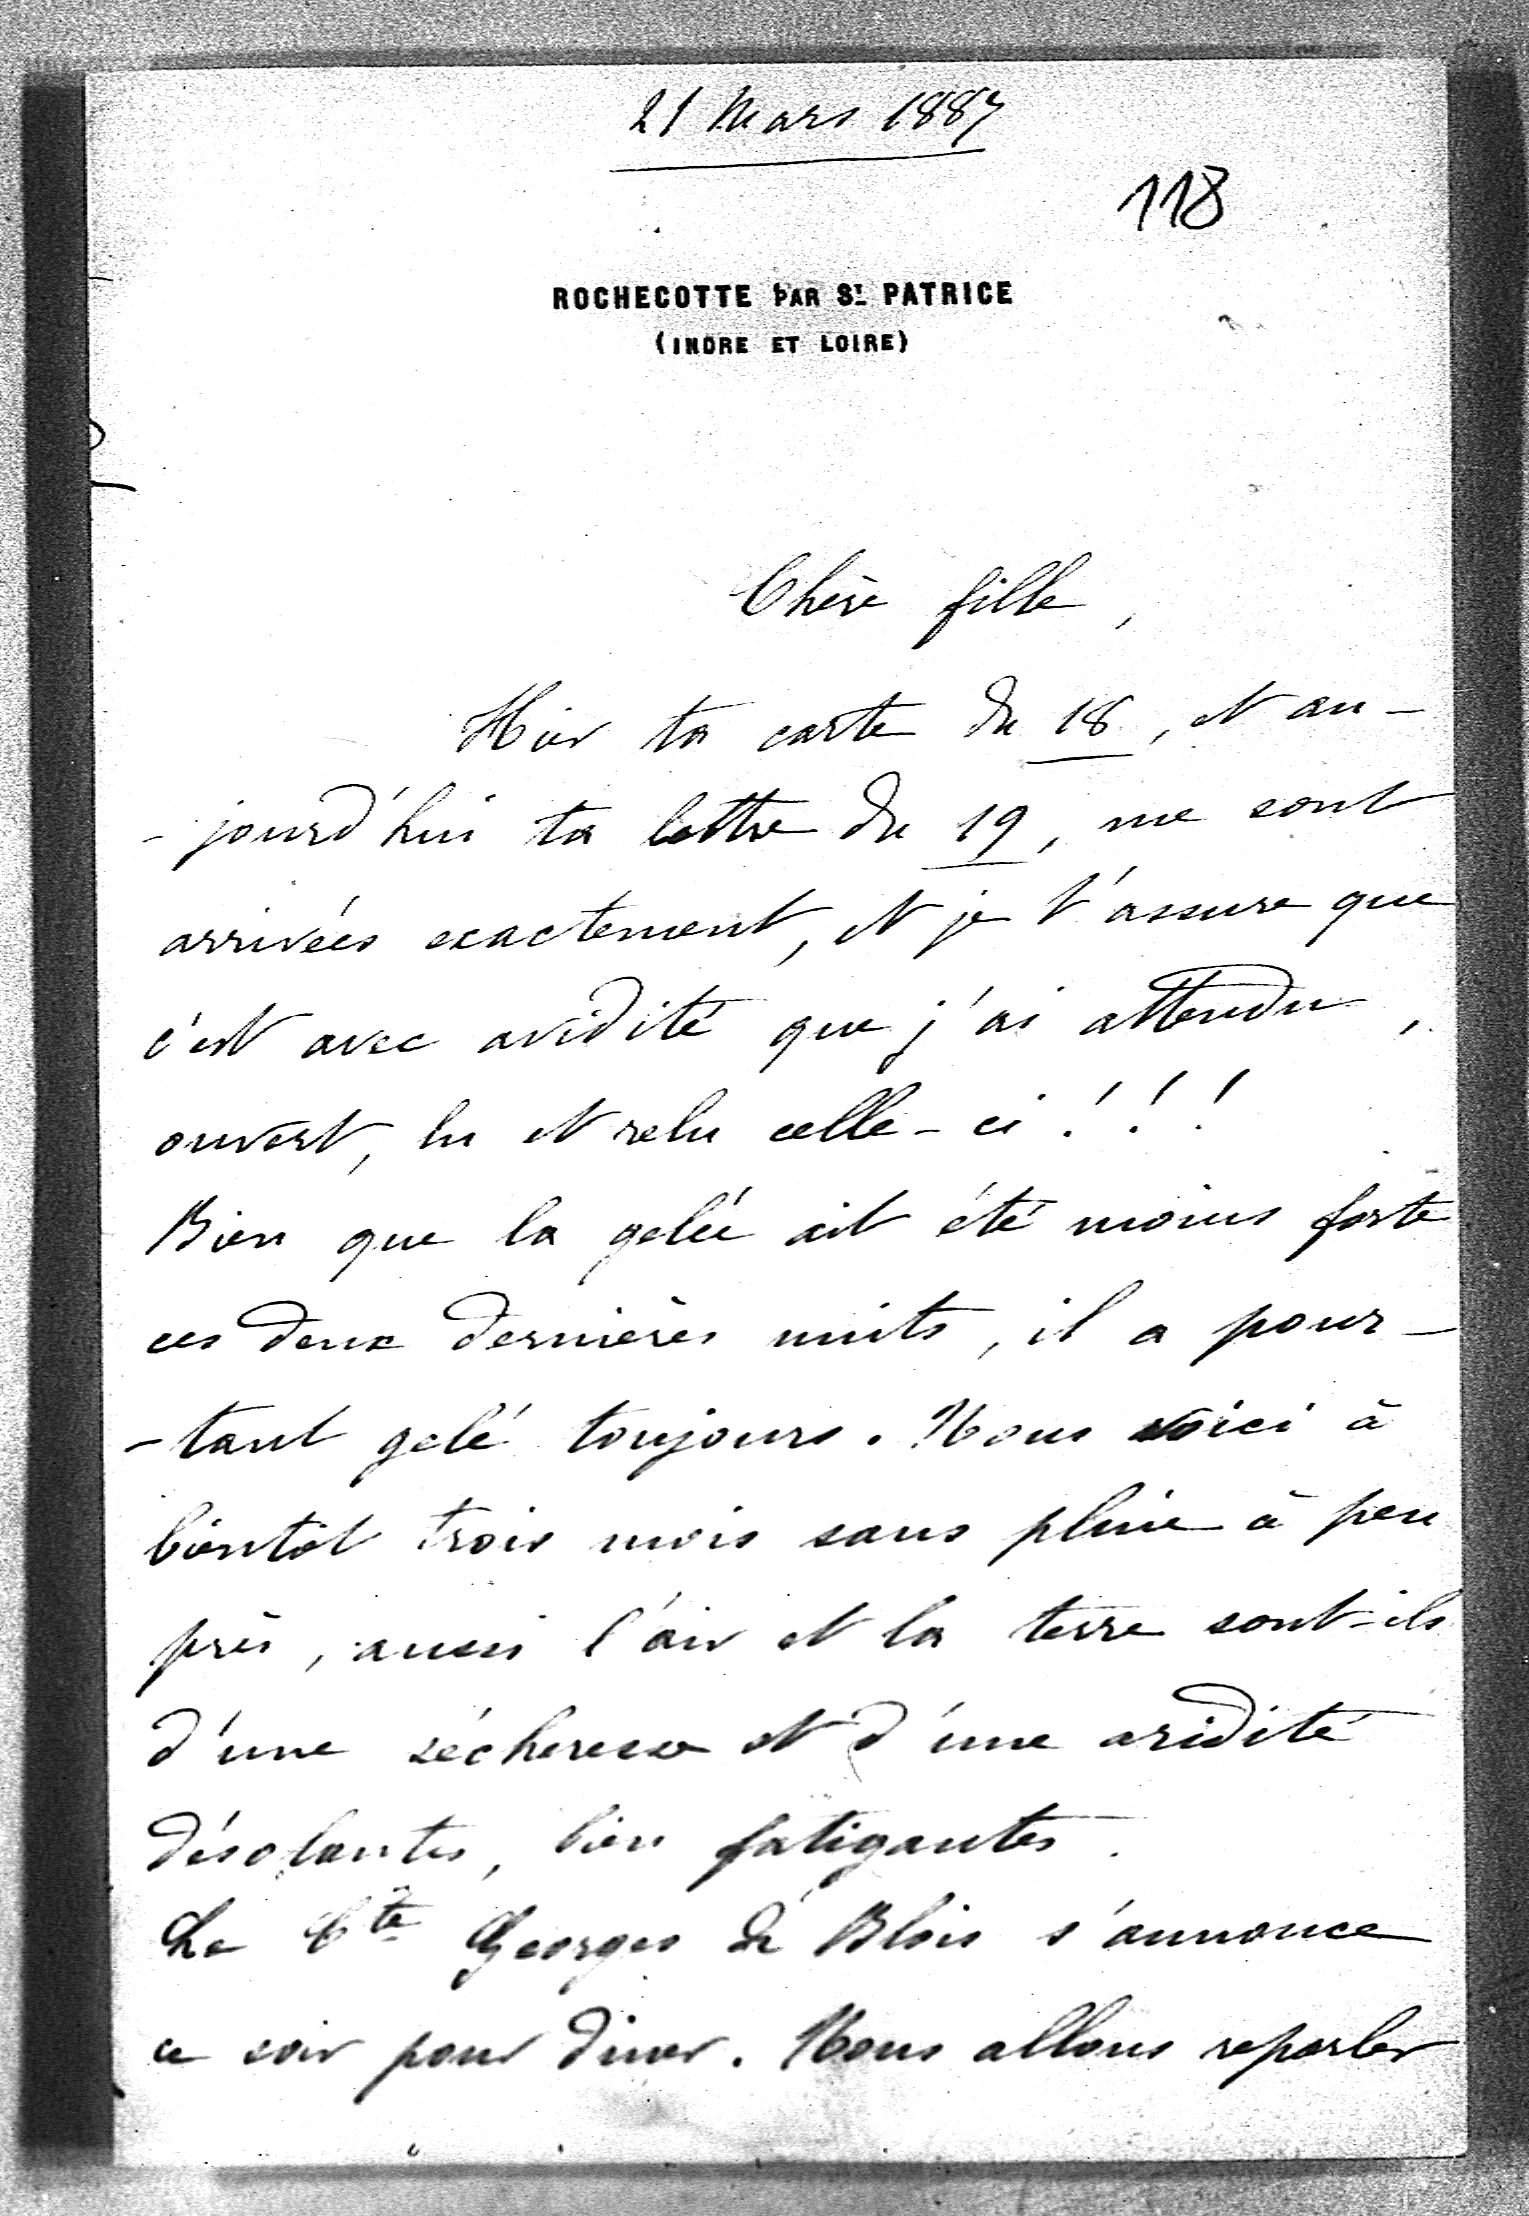 21 Mars 1887
118
ROCHECOTTE PAR ST PATRICE
(INDRE ET LOIRE)
Chère fille,
Hier ta carte du 18, et au-
-jourd'hui ta lettre du 19, me sont
arrivées exactement, et je t'assure que
c'est avec avidité que j'ai attendu,
ouvert, lu et relu celle-ci!!!
Bien que la gelée ait été moins forte
ces deux dernières nuits, il a pour-
-tant gelé toujours. Nous voici à
bientôt trois mois sans pluie à peu
près, aussi l'air et la terre sont-ils
d'une sécheresse et d'une aridité
désolantes, bien fatigantes.
Le Cte Georges de Blois s'annonce
ce soir pour diner. Nous allons reparler